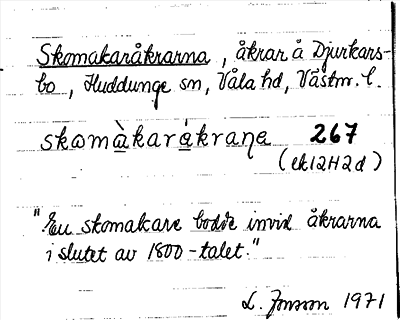 Skomakaråkrarna, åkrar å Djurkars-
bo, Huddunge sn, Våla hd, Västm. l.
skomàkarákrana 267
(ek12H2d)
"En skomakare bodde invid åkrarna
i slutet av 1800-talet."
L. Jonsson 1971